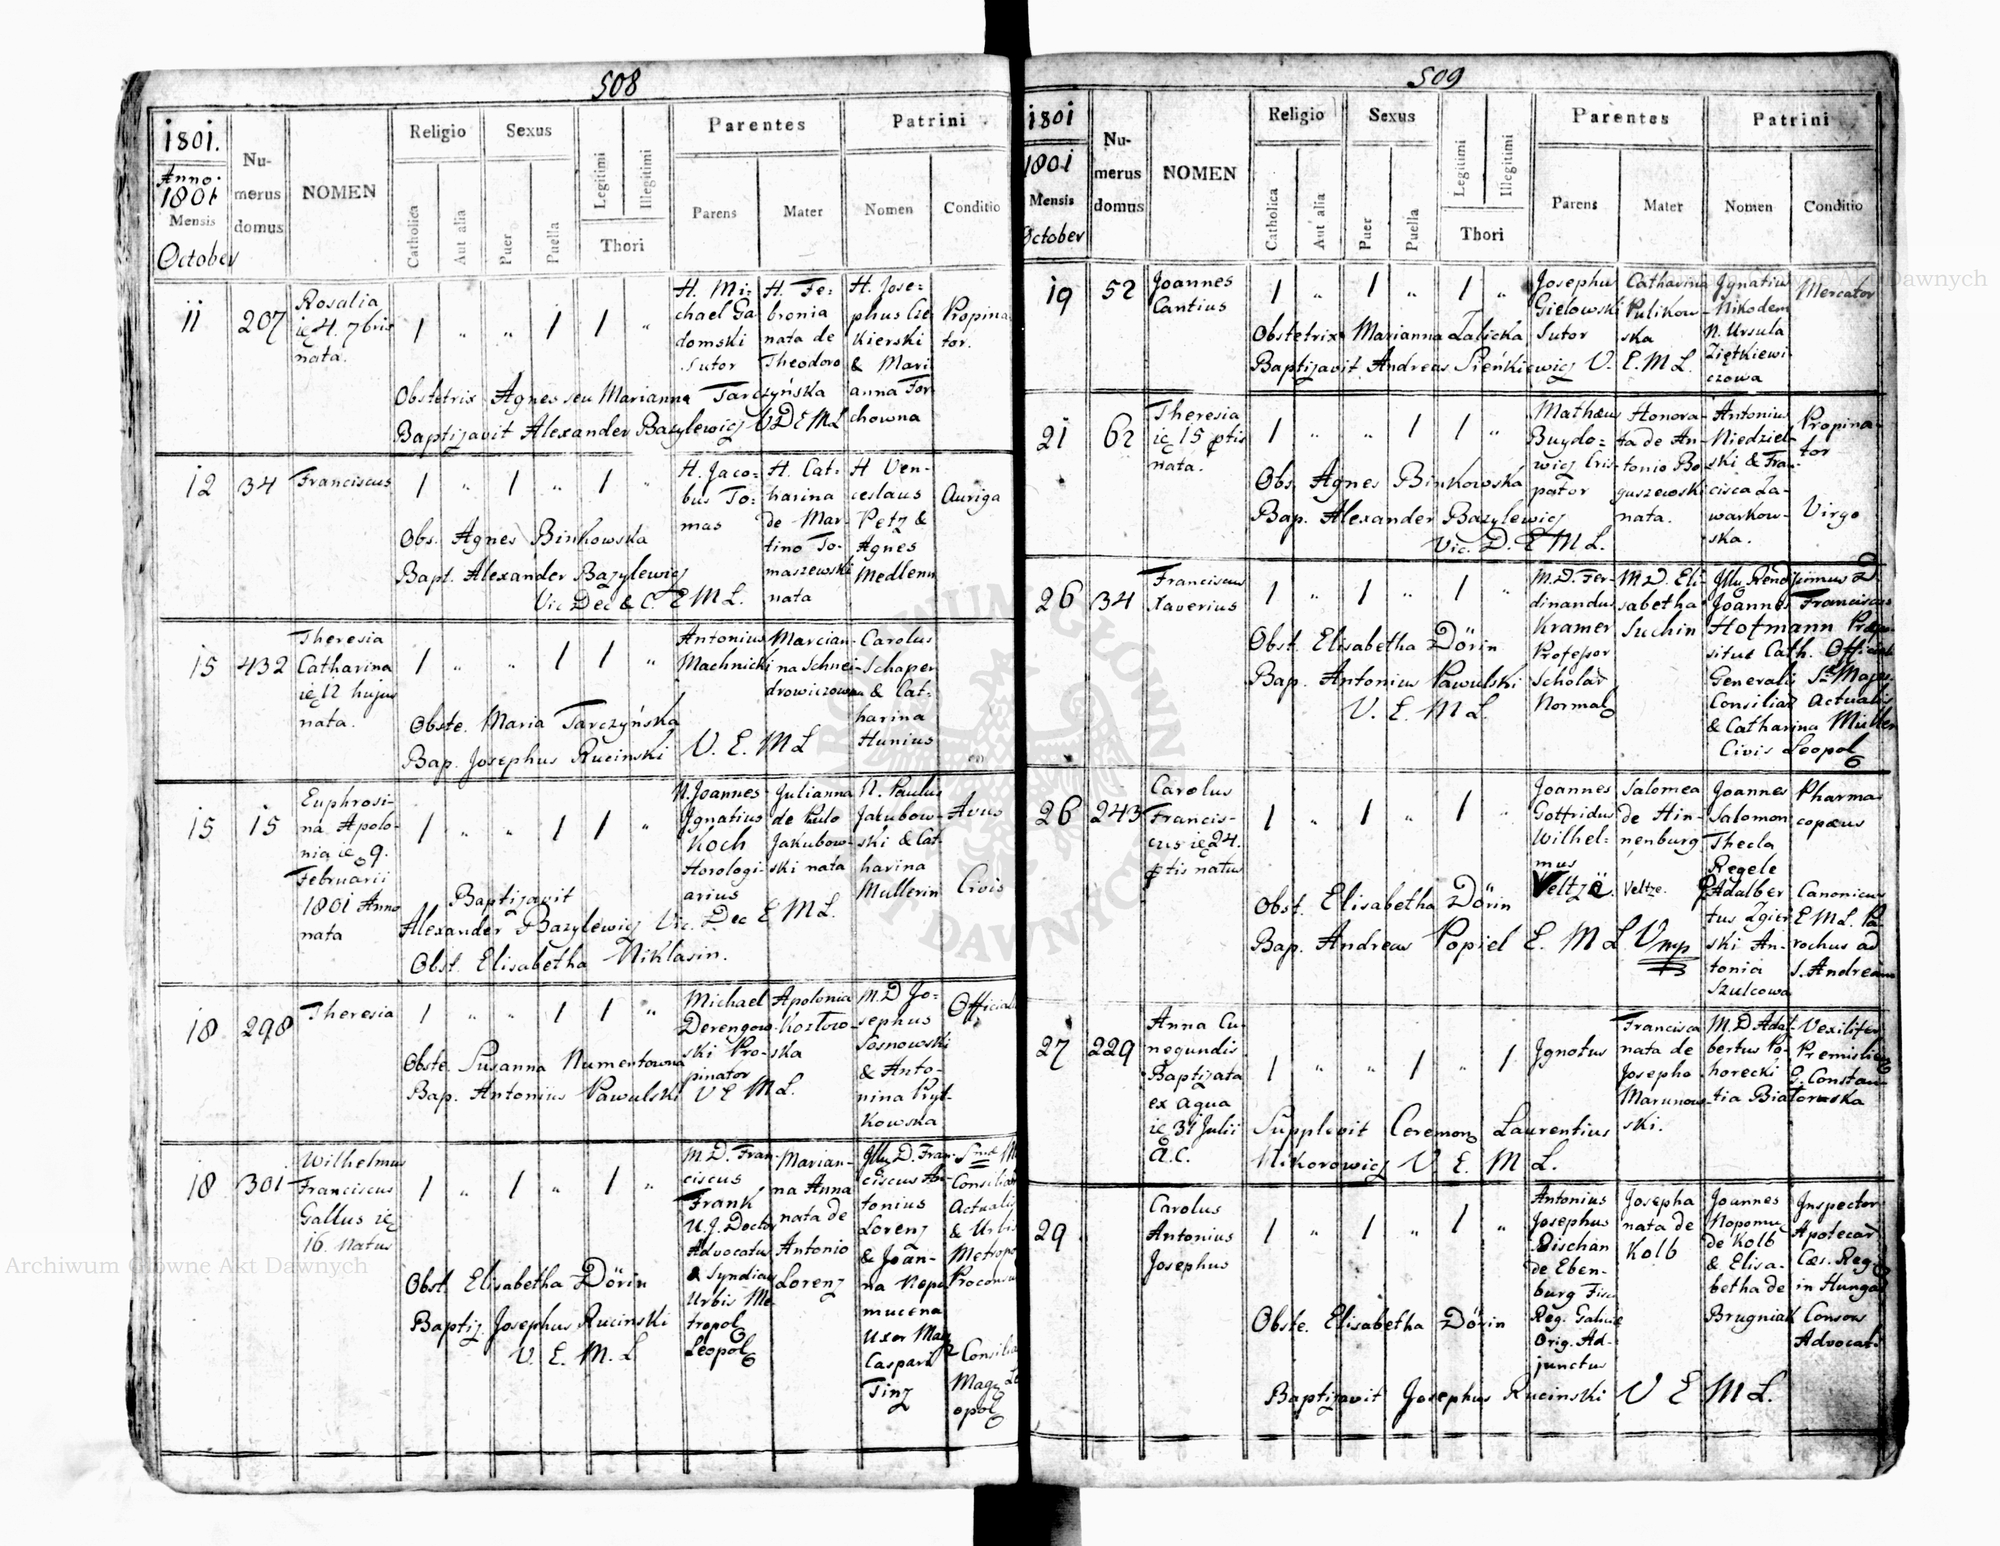 508
1801.
Anno
1801
Mensis
October
Numerus domus
NOMEN
Religio
Catholica
Aut alia
Sexus
Puer
Puella
Legitimi
Illegitimi
Thori
Parentes
Parens
Mater
Patrini
Nomen
Conditio
11
207
Rosalia
nata.
H. Mi-
chael Ga
domski
Sutor
H. Fe-
bronia
nata de
Theodoro
H. Jose-
phus
kierski
& Mari
anna Tor
chowna
Propina
tor.
Obstetrix Agnes seu Marianna Tarczyńska
Baptizavit Alexander Bazylewicz V D E M L
12
34
Franciscus
H. Jaco-
bus To-
mas
H. Cat-
harina
de Mar-
tino To-
maszewski
nata
H Ven-
ceslaus
Petz &
Agnes
Medlenn
Auriga
Obs. Agnes Binkowska
Bapt. Alexander Bazylewicz
Vic Dec & C. E M L.
15
432
Theresia
Catharina
ic 12 hujus
nata.
Antonius
Machnicki
Marcian-
na Schnei-
drowiczowna
Carolus
Schaper
& Cat-
harina
Hunius
Obste. Maria Tarczyńska
Bap. Josephus Rucinski V. E. M L
15
15
Euphrosi-
na Apolo-
nia ic 9.
Februarii
1801 Anno
nata
N. Joannes
Ignatius
Koch
Horologi-
arius
Julianna
de Paulo
Jakubow-
ski nata
N. Paulus
Jakubow-
ski & Cat-
harina
Mullerin
Avus
Civis
Baptizavit
Alexander Bazylewicz Vic. Dec E M L.
Obst. Elisabetha Niklasin.
18
298
Theresia
Michael
Derengow-
ski Pro-
pinator
Apolonia
Kozłow-
ska
M. D Jo-
sephus
Sosnowski
& Anto-
nina Pryl-
kowska
Official
Obste. Susanna Numentowna
Bap. Antonius Pawulski V E M L.
18
301
Wilhelmus
Franciscus
Gallus ic
16. Natus
M. D. Fran-
ciscus
Frank
U. J. Doctor
Advocatus
& Syndicus
Urbis Me-
tropol
Leopol
Marian-
na Anna
nata de
Antonio
Lorenz
Illu D. Fran-
ciscus An-
tonius
Lorenz
& Joan-
na Nepo
mucena
Uxor Mag
Caspari
Tinz
Consilia
Actualis
& Urbis
Metropo
Proconsu
Consilia
Mag. Le
opol
Obst. Elisabetha Dörin
Baptiz Josephus Rucinski
V. E. M. L
509
1801
1801
Mensis
October
Numerus domus
NOMEN
Religio
Catholica
Aut alia
Sexus
Puer
Puella
Legitimi
Illegitimi
Thori
Parentes
Parens
Mater
Patrini
Nomen
Conditio
19
52
Joannes
Cantius
Josephus
Gielowski
Sutor
Catharina
Pulikow-
ska
Ignatius
Nikodem
N. Ursula
Ziętkiewi
czowa
Mercator
Obstetrix Marianna Zalicka
Baptizavit Andreas Sieńkiewicz V. E. M L.
21
62
Theresia
ic 15 ptis
nata.
Mathæus
Buydo-
wicz Cris-
pator
Honora-
ta de An-
tonio Bo-
guszewski
nata.
Antonius
Niedziel-
ski & Fran-
cisca Za-
warkow-
ska.
Propina-
tor
Virgo
Obs. Agnes Binkowska
Bap. Alexander Bazylewicz
Vic. D. E M L.
26
34
Franciscus
Xaverius
M. D. Fer-
dinandus
Kramer
Professor
Scholar
Normal
M D. Eli-
sabetha
Suchin
Illu Rendissimus D.
Joannes Franciscus
Hofmann Præpo-
situs Cath. Official
Generalis
Consiliar Actualis
& Catharina Muller
Civis Leopol
Obst. Elisabetha Dörin
Bap. Antonius Pawulski
V. E. M L.
26
243
Carolus
Francis-
cus ic 24.
ptis natus
Joannes
Gottfridus
Wilhel-
mus
Veltzé.
Salomea
de Hin-
nenburg
Veltze.
Joannes
Salomon
Thecla
Regele
Adalber
tus Zgier
ski An-
tonia
Szulcowa
Pharma
copæus
Canonicus
E M L. Pa
rochus ad
S. Andream
Obst. Elisabetha Dörin
Bap. Andreas Popiel E. M L V mp
27
229
Anna Cu-
negundis
Baptizata
ex aqua
ic 31 Julii
a. c.
Ignotus
Francisca
nata de
Josepho
Marunow-
ski.
M. D Adal-
bertus Po-
horecki
Vexilifer
Premislien
& Constan-
tia Białoruska
Supplevit Ceremon Laurentius
Nikorowicz V E. M L.
29
Carolus
Antonius
Josephus
Antonius
Josephus
Pischan
de Eben-
burg Fisc
Reg. Galicie
Orig. Ad-
junctus
Josepha
nata de
Kolb
Joannes
Nopomu
de Kolb
& Elisa-
betha de
Brugniak
Inspector
Apotecar
Cæs. Reg.
in Hunga
Consors
Advocati
Obste. Elisabetha Dörin
Baptizavit Josephus Rucinski V E M L.
Archiwum Główne Akt Dawnych
Archiwum Główne Akt Dawnych
ARCHIWUM GŁÓWNE AKT DAWNYCH